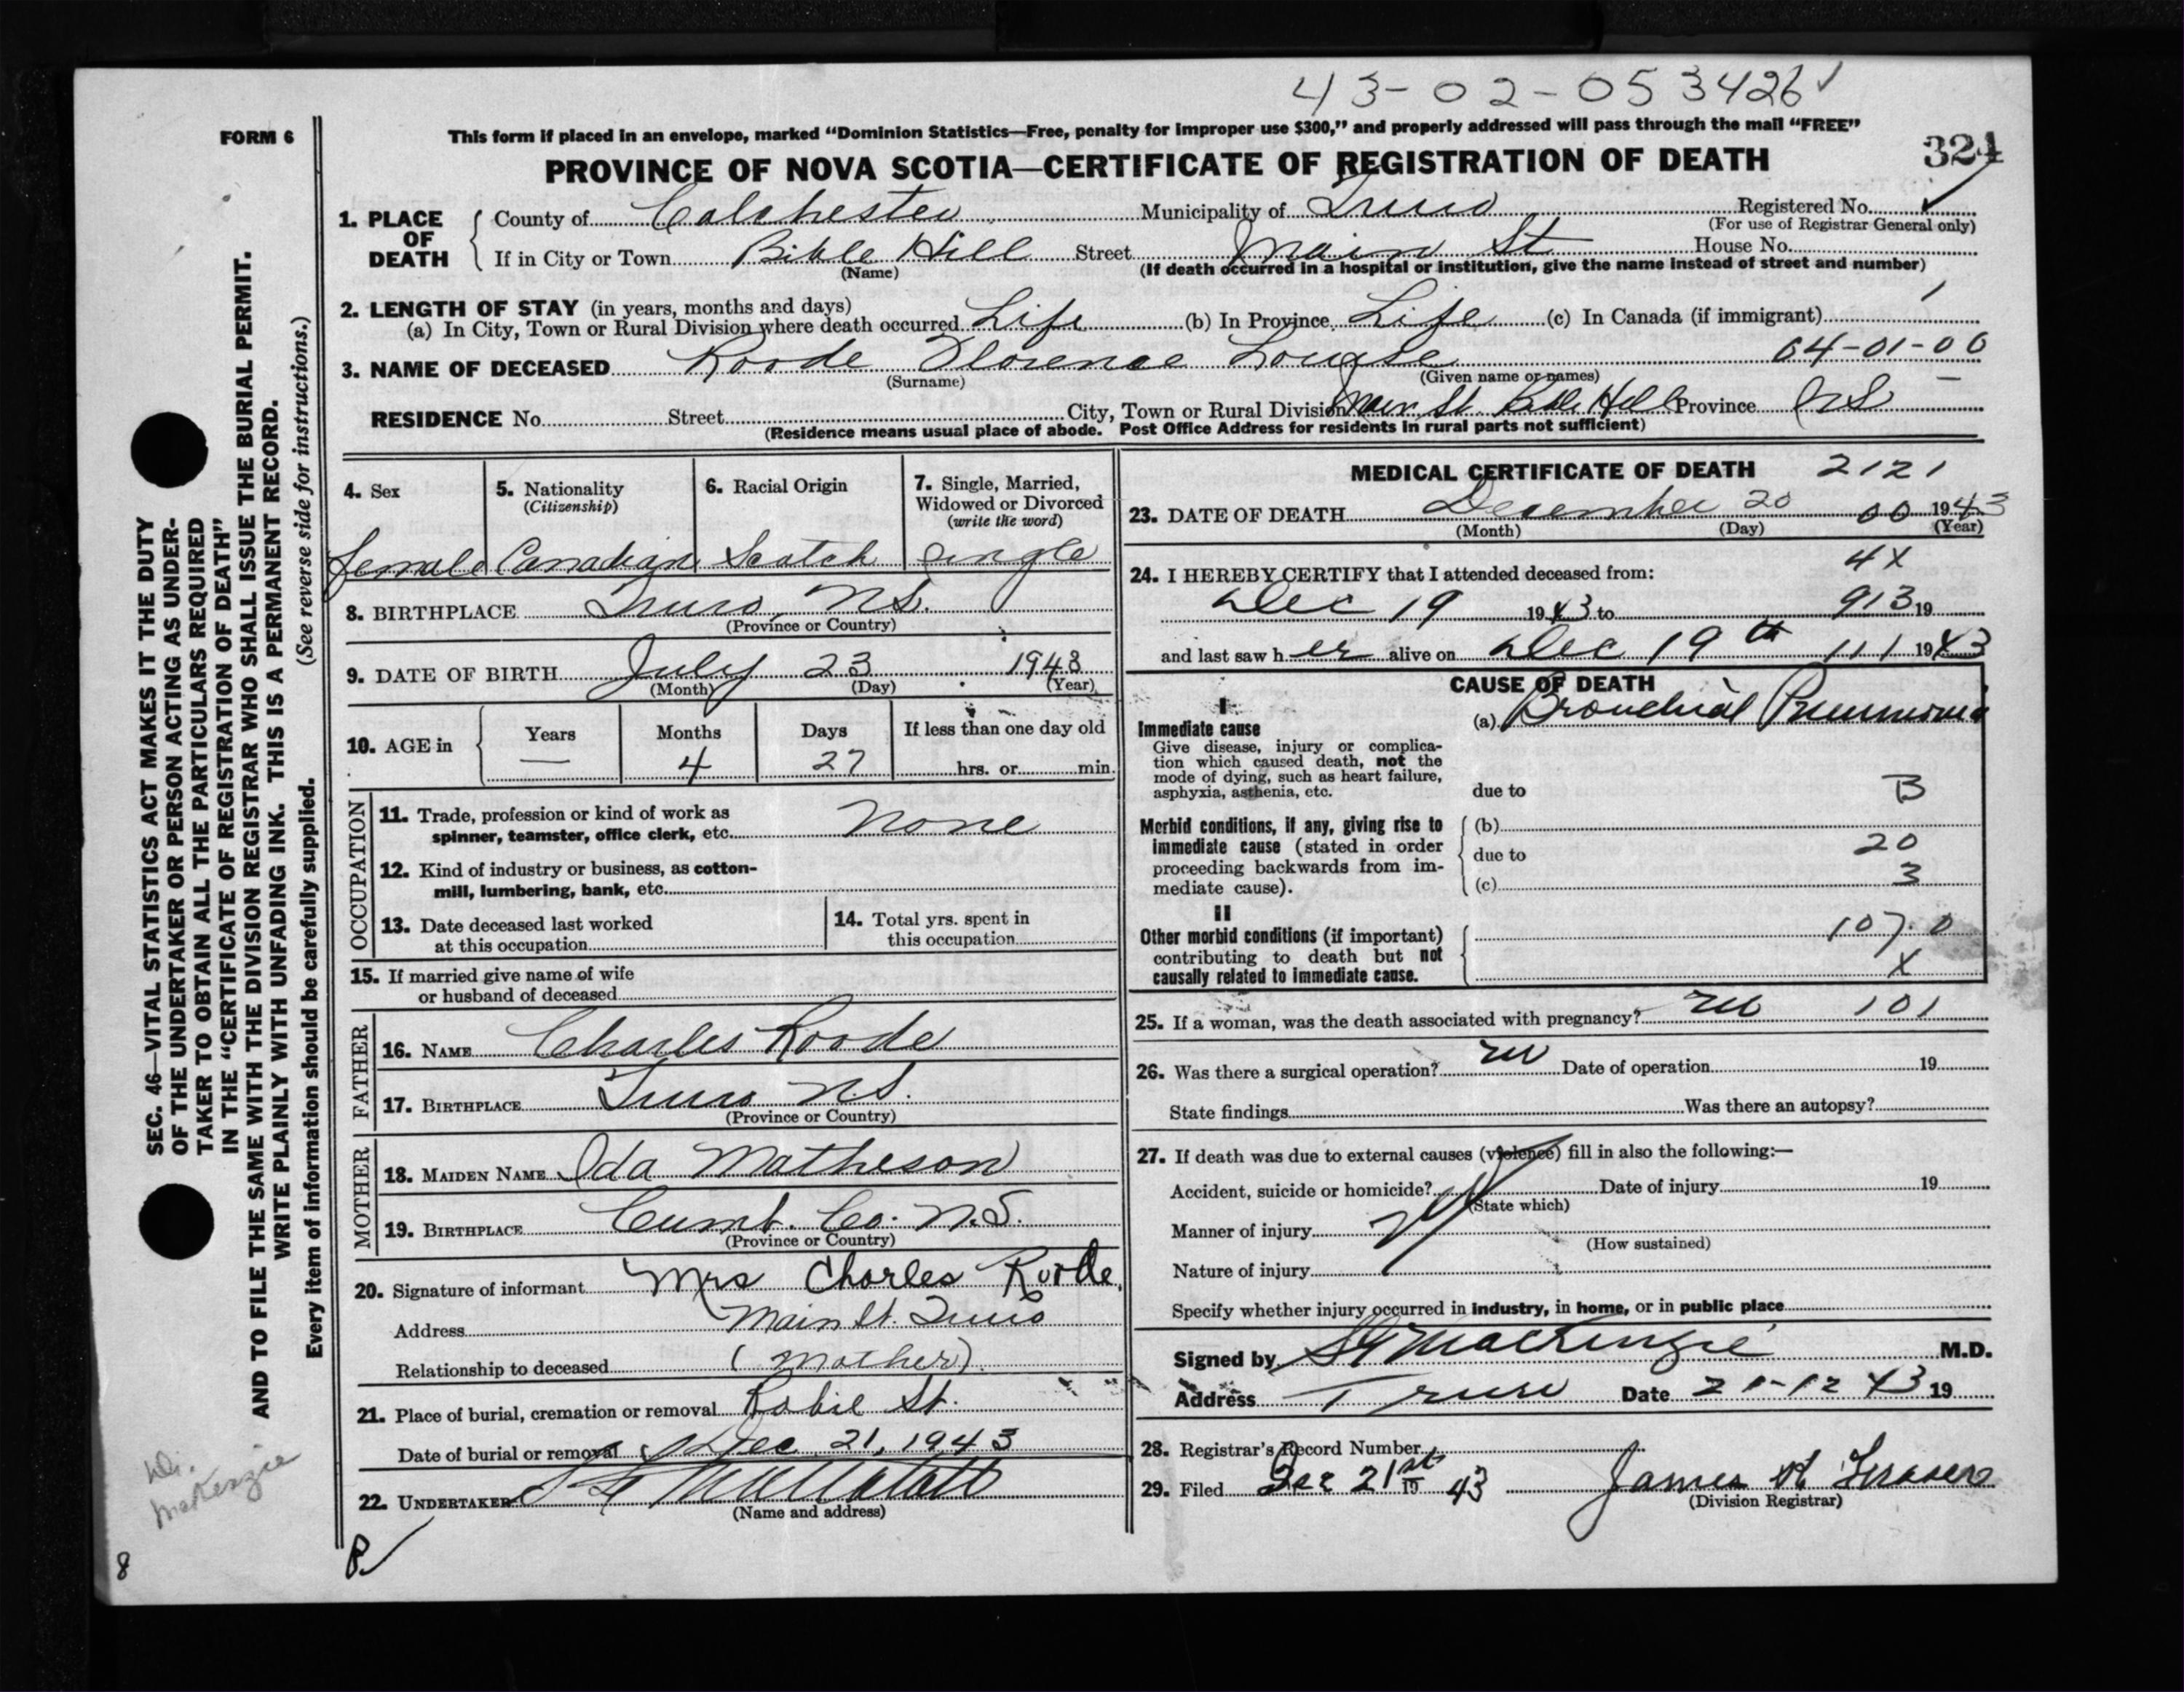 43-02-053426 ✓
FORM 6
This form if placed in an envelope, marked "Dominion Statistics—Free, penalty for improper use $300," and properly addressed will pass through the mail "FREE"
324
PROVINCE OF NOVA SCOTIA—CERTIFICATE OF REGISTRATION OF DEATH
1. PLACE OF DEATH
County of Colchester Municipality of Truro Registered No. ✓
(For use of Registrar General only)
If in City or Town Bible Hill Street Main St House No.
(Name) (If death occurred in a hospital or institution, give the name instead of street and number)
2. LENGTH OF STAY (in years, months and days)
(a) In City, Town or Rural Division where death occurred Life (b) In Province Life (c) In Canada (if immigrant)
3. NAME OF DECEASED Roode Florence Louise 04-01-00
(Surname) (Given name or names)
RESIDENCE No. Street City, Town or Rural Division Main St. Bible Hill Province N S
(Residence means usual place of abode. Post Office Address for residents in rural parts not sufficient)
4. Sex 5. Nationality (Citizenship) 6. Racial Origin 7. Single, Married, Widowed or Divorced (write the word)
female Canadian Scotch single
8. BIRTHPLACE Truro, N.S.
(Province or Country)
9. DATE OF BIRTH July 23 1943
(Month) (Day) (Year)
10. AGE in Years Months Days If less than one day old
— 4 27 hrs. or min.
OCCUPATION
11. Trade, profession or kind of work as
spinner, teamster, office clerk, etc. None
12. Kind of industry or business, as cotton-
mill, lumbering, bank, etc.
13. Date deceased last worked
at this occupation
14. Total yrs. spent in
this occupation
15. If married give name of wife
or husband of deceased
FATHER
16. NAME Charles Roode
17. BIRTHPLACE Truro N.S.
(Province or Country)
MOTHER
18. MAIDEN NAME Ida Matheson
19. BIRTHPLACE Cumb. Co. N.S.
(Province or Country)
20. Signature of informant Mrs Charles Roode,
Address Main St. Truro
Relationship to deceased (mother)
21. Place of burial, cremation or removal Robie St.
Date of burial or removal Dec. 21, 1943
22. UNDERTAKER
(Name and address)
MEDICAL CERTIFICATE OF DEATH 2121
23. DATE OF DEATH December 20 00 1943
(Month) (Day) (Year)
4X
24. I HEREBY CERTIFY that I attended deceased from:
Dec 19 1943 to 913 19
and last saw her alive on Dec 19th 111 1943
CAUSE OF DEATH
I
Immediate cause
(a) Bronchial Pneumonia
Give disease, injury or complica-
tion which caused death, not the
mode of dying, such as heart failure,
asphyxia, asthenia, etc.
due to B
Morbid conditions, if any, giving rise to
immediate cause (stated in order
proceeding backwards from im-
mediate cause).
(b)
due to 20
(c) 3
II
Other morbid conditions (if important)
contributing to death but not
causally related to immediate cause.
107.0
X
25. If a woman, was the death associated with pregnancy? no 101
26. Was there a surgical operation? no Date of operation 19
State findings Was there an autopsy?
27. If death was due to external causes (violence) fill in also the following:—
Accident, suicide or homicide? Date of injury 19
(State which)
Manner of injury
(How sustained)
Nature of injury
Specify whether injury occurred in industry, in home, or in public place
Signed by MacKenzie M.D.
Address Truro Date 21-12 43 19
28. Registrar's Record Number
29. Filed Dec 21st 19 43 James
(Division Registrar)
SEC. 46—VITAL STATISTICS ACT MAKES IT THE DUTY
OF THE UNDERTAKER OR PERSON ACTING AS UNDER-
TAKER TO OBTAIN ALL THE PARTICULARS REQUIRED
IN THE "CERTIFICATE OF REGISTRATION OF DEATH"
AND TO FILE THE SAME WITH THE DIVISION REGISTRAR WHO SHALL ISSUE THE BURIAL PERMIT.
WRITE PLAINLY WITH UNFADING INK. THIS IS A PERMANENT RECORD.
Every item of information should be carefully supplied. (See reverse side for instructions.)
Dr.
McKenzie
8